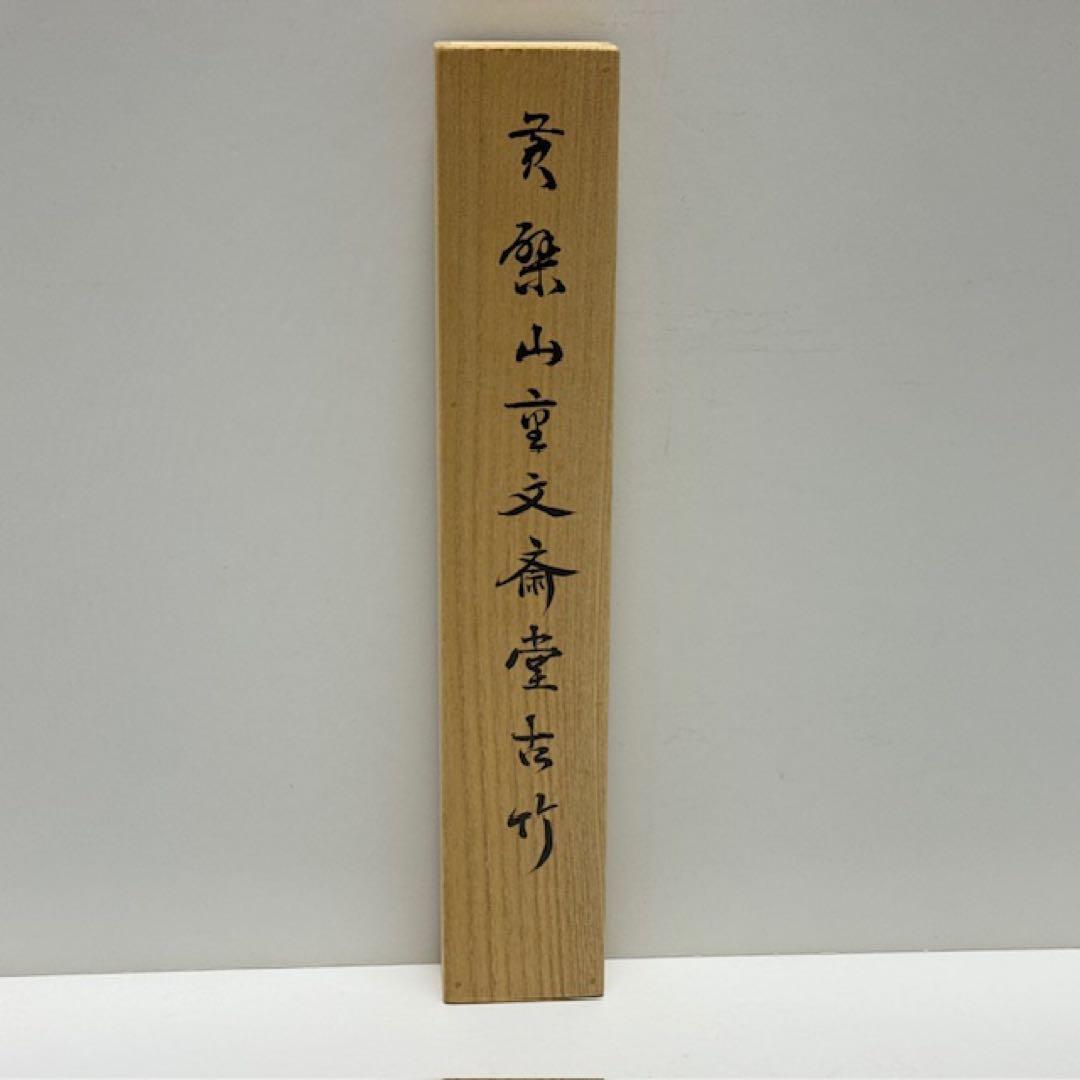 黄檗山重文斎堂古竹